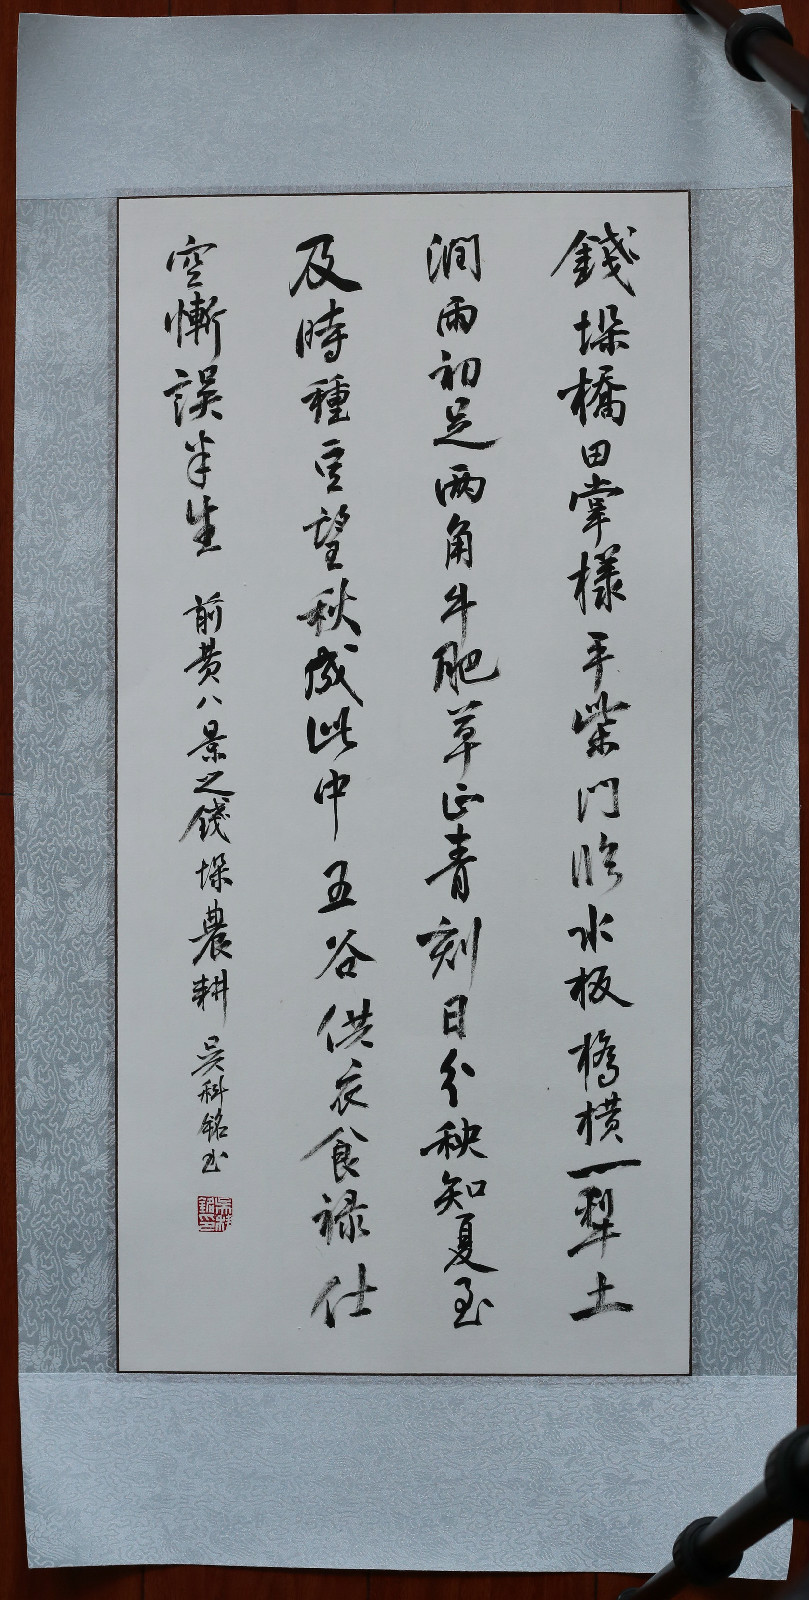 錢垛橋田掌樣平柴門臨水板橋橫一犁土
潤雨初足兩角牛肥草正青刻日分秧知夏至
及時種豆望秋成此中五谷供衣食禄仕
空慚誤半生 前黄八景之錢垛農耕 吴科銘书